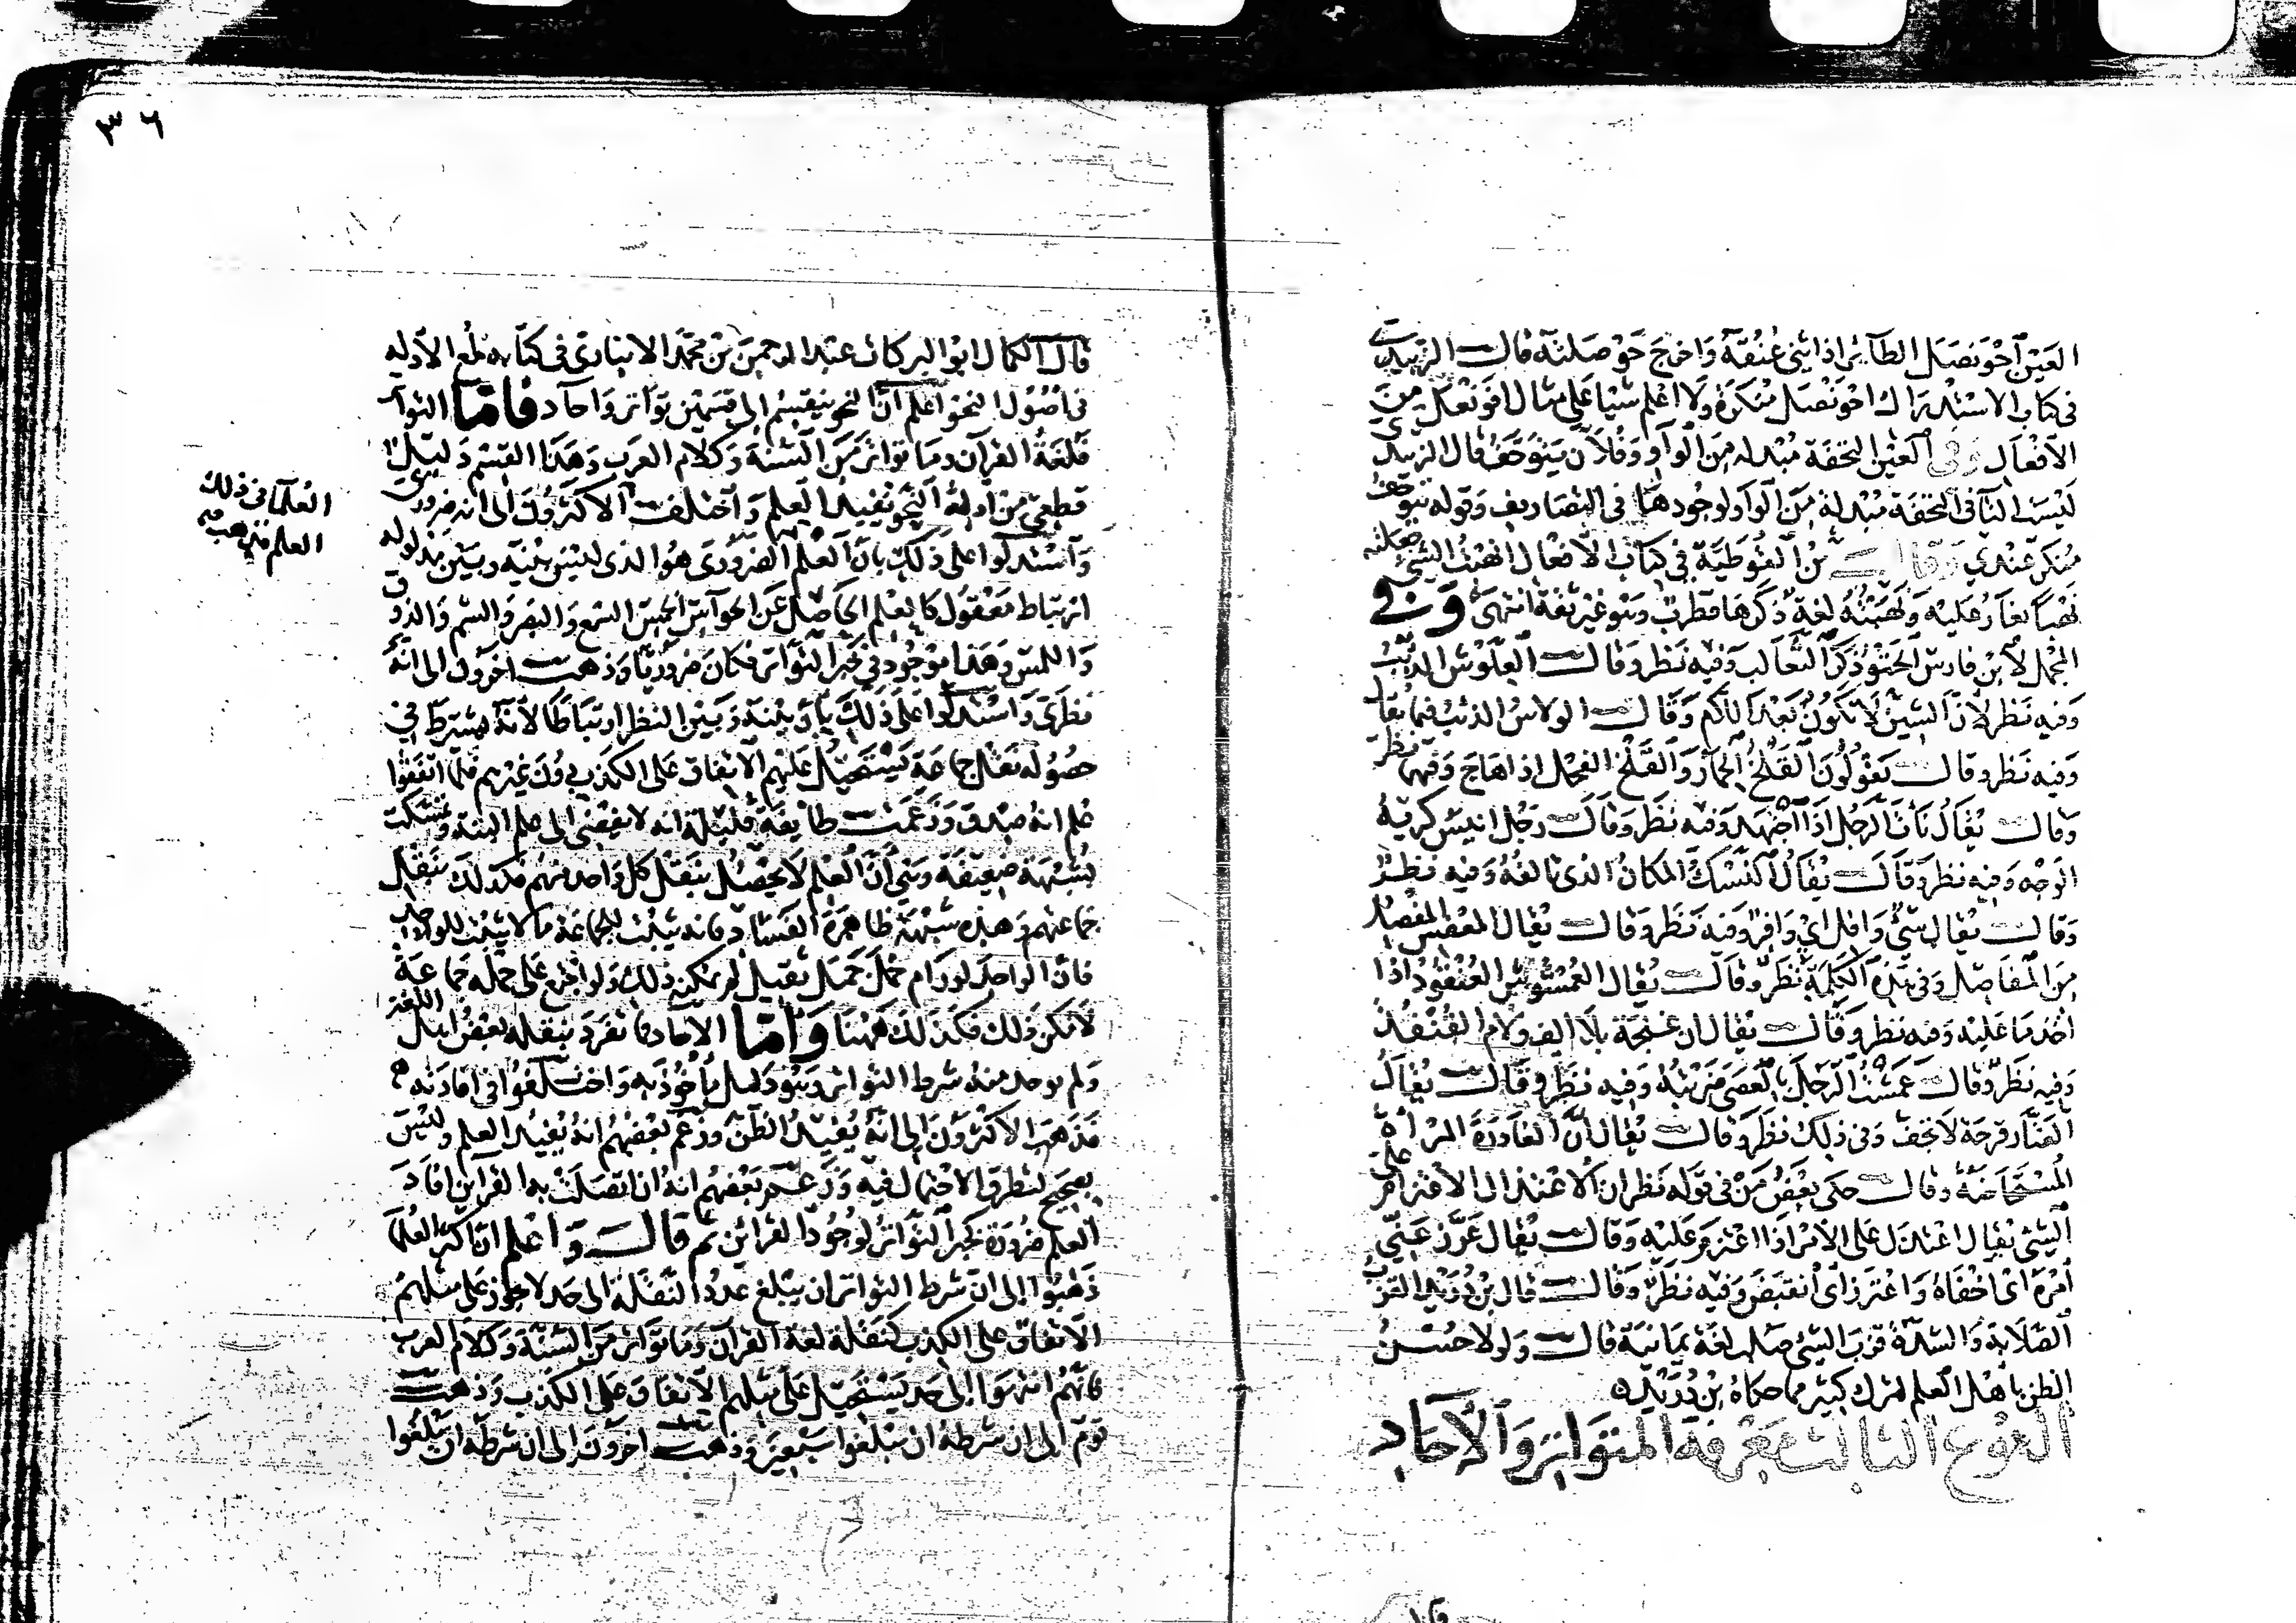 العين احونصل الطائر اذا ثنى عنقه واخرج حوصلته قال الزبيدي
في كتاب الاستدراك احونصل منكرة ولا اعلم شيا على مثال افونعل من
الافعال وفي العين التحفة مبدلة من الواو وفلان يتوحف قال الزبيدي
ليست التا في التحفة مبدلة من الواو لوجودها في التصاريف وقوله يتوحف
منكر عندي وقال بن القوطية في كتاب الافعال انهبت الشي جعلته
نهبا يغار عليه ونهبته لغة ذكرها قطرب وهو غير ثقة انتهى وفي
المجمل لابن فارس ذكر الثعالب وفيه نظر وقال العلوش الذيب
وفيه نظر لان الشين لا تكون بعد اللام وقال الولاس الذئب فيما يقال
وفيه نظر وقال يقولون القلخ الحمار والقلخ الفحل اذا هاج وفيهما نظر
وقال يقال نأنأ الرجل اذا اجتهد وفيه نظر وقال رجل انيس كريه
الوجه وفيه نظر وقال يقال المكان الذي تالفه وفيه نظر
وقال يقال شي وافل اي وافر وفيه نظر وقال يقال المعفس المفصل
من المفاصل وفي هذه الكلمة نظر وقال يقال العمشوش العنقود اذا
اخذ ما عليه وفيه نظر وقال يقال ان غنجة بلا الف ولام القنفذ
وفيه نظر وقال عمشت الرجل بالعصى ضربته وفيه نظر وقال يقال
الضنار قرحة لا تجف وفي ذلك نظر وقال يقال ان الغادرة المراة
المستحاضة وقال حكى بعض من في قوله نظر ان الاعتذال الاعتزام على
الشي يقال اعتذل على الامر اذا اعتزم عليه وقال يقال عرز عني
امره اي اخفاه واعترز اي انقبض وفيه نظر وقال قال بن دريد القزب
الصلابة والشدة قزب الشي صلب لغة يمانية قال ولولا حسن
الظن باهل العلم لترك كثير مما حكاه بن دريد
النوع الثالث معرفة المتواتر والآحاد
٣٦
قال الكمال ابو البركات عبد الرحمن بن محمد الانباري في كتابه لمع الادله
في اصول النحو اعلم ان النحو ينقسم الى قسمين تواتر وآحاد فاما التواتر
فلغة القرآن وما تواتر من السنة وكلام العرب وهذا القسم دليل
قطعي من ادلة النحو يفيد العلم واختلف الاكثرون الى انه ضروري
واستدلوا على ذلك بان العلم الضروري هو الذي ليس بينه وبين مدلوله
ارتباط معقول كالعلم الحاصل عن الحواس الخمس السمع والبصر والشم والذوق
واللمس وهذا موجود في خبر التواتر فكان ضروريا وذهب اخرون الى انه
نظري واستدلوا على ذلك بان بينه وبين النظر ارتباطا لانه يشترط في
حصوله نقل جماعة يستحيل عليهم الاتفاق على الكذب دون غيرهم فلما اتفقوا
علم انه صدق وزعمت طايفة قليلة انه لا يفضي الى علم البتة وتمسكت
بشبهة ضعيفة وهي ان العلم لا يحصل بنقل كل واحد منهم فكذلك بنقل
جماعتهم وهذه شبهة ظاهرة الفساد فانه يثبت للجماعة ما لا يثبت للواحد
فان الواحد لو رام حمل حمل ثقيل لم يمكنه ذلك ولو اجتمع على حمله جماعة
لامكن ذلك فكذلك ههنا واما الآحاد فما تفرد بنقله بعض اهل اللغة
ولم يوجد منه شرط التواتر وهو دليل مأخوذ به واختلفوا في افادته
فذهب الاكثرون الى انه يفيد الظن وزعم بعضهم انه يفيد العلم وليس
بصحيح لتطرق الاحتمال فيه وزعم بعضهم انه ان اتصلت به القراين افاد
العلم ضرورة كخبر التواتر لوجود القرائن ثم قال واعلم ان اكثر العلما
ذهبوا الى ان شرط التواتر ان يبلغ عدد النقلة الى حد لا يجوز على مثلهم
الاتفاق على الكذب كنقلة لغة القرآن وما تواتر من السنة وكلام العرب
فانهم انتهوا الى حد يستحيل على مثلهم الاتفاق على الكذب وذهب
قوم الى ان شرطه ان يبلغوا سبعين وذهب اخرون الى ان شرطه ان يبلغوا
العلما في ذلك
العلم فذهب